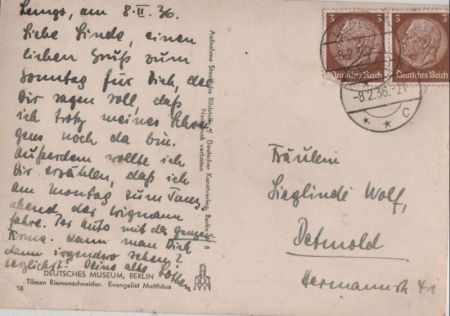 Lemgo, am 8.II.36.
Liebe Linde, einen
lieben Gruß zum
Sonntag für Dich, der
Dir sagen soll, daß
ich trotz meines Schwei-
gens noch da bin.
Außerdem wollte ich
Dir erzählen, daß ich
am Montag zum Tanz
abend der Wigmann
fahre. Per Auto mit der ganzen
Kann man Dich
dann irgendwo sehen?
Herzlichst! Deine alte
DEUTSCHES MUSEUM, BERLIN
Tilman Riemenschneider. Evangelist Matthäus
18
Aufnahme Staatliche Bildstelle / Deutscher Kunstverlag, Berlin W
Nachdruck verboten
3
3
Deutsches Reich
Deutsches Reich
-8.2.36.
c
Fräulein
Sieglinde Wolf,
Detmold
Hermannstr. 41